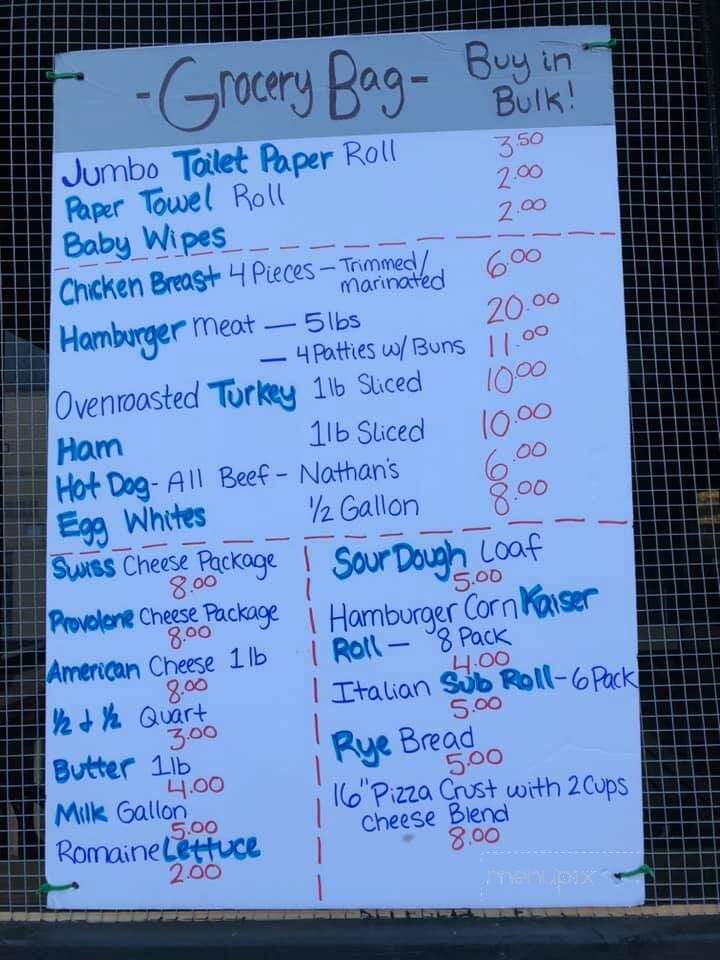 - Grocery Bag -
Buy in
Bulk!
Jumbo Toilet Paper Roll 3.50
Paper Towel Roll 2.00
Baby Wipes 2.00
Chicken Breast 4 Pieces - Trimmed/ 6.00
marinated
Hamburger meat — 5lbs 20.00
— 4 Patties w/ Buns 11.00
Ovenroasted Turkey 1lb Sliced 10.00
Ham 1lb Sliced 10.00
Hot Dog - All Beef - Nathan's 6.00
Egg Whites 1/2 Gallon 8.00
Swiss Cheese Package
8.00
Provolone Cheese Package
8.00
American Cheese 1lb
8.00
1/2 & 1/2 Quart
3.00
Butter 1lb
4.00
Milk Gallon
5.00
Romaine Lettuce
2.00
Sour Dough Loaf
5.00
Hamburger Corn Kaiser
Roll — 8 Pack
4.00
Italian Sub Roll - 6 Pack
5.00
Rye Bread
5.00
16" Pizza Crust with 2 Cups
cheese Blend
8.00
menupix